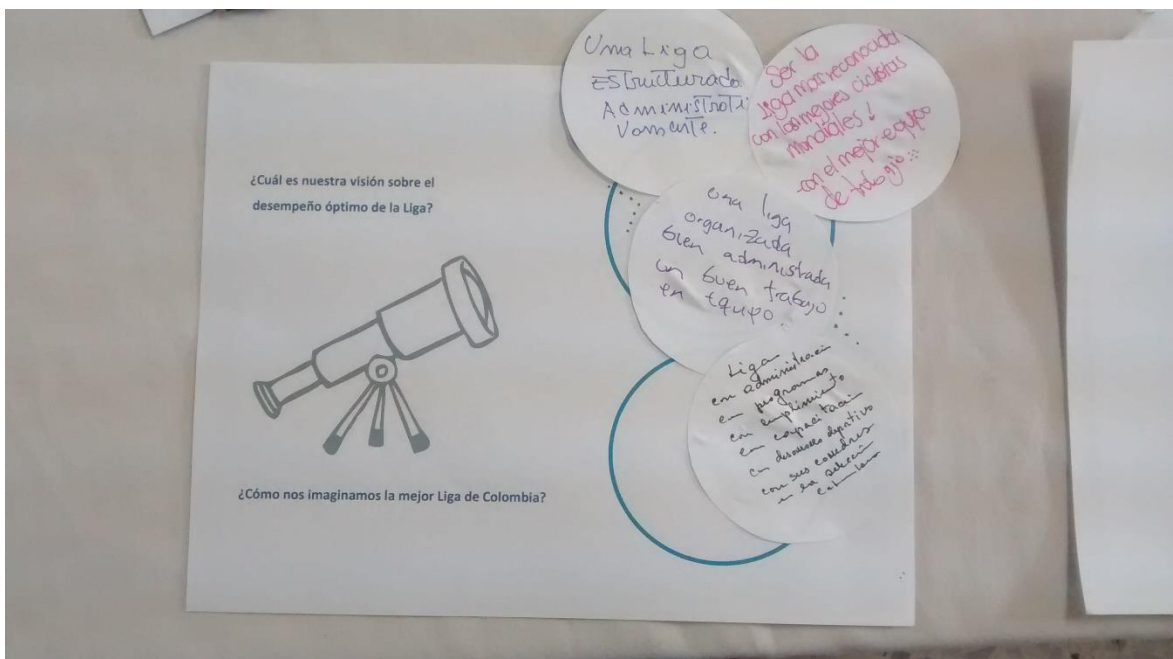 ¿Cuál es nuestra visión sobre el
desempeño óptimo de la Liga?
¿Cómo nos imaginamos la mejor Liga de Colombia?
Una Liga
EStructurada
Administrati
Vamente.
Ser la
liga mas reconocida
con los mejores ciclistas
mundiales!
con el mejor equipo
de trabajo :::
una liga
organizada
bien administrada
un buen trabajo
en equipo.
Liga
con administracion
con programas
con cumplimiento
con capacitacion
con desarrollo deportivo
con sus corredores
en la selección